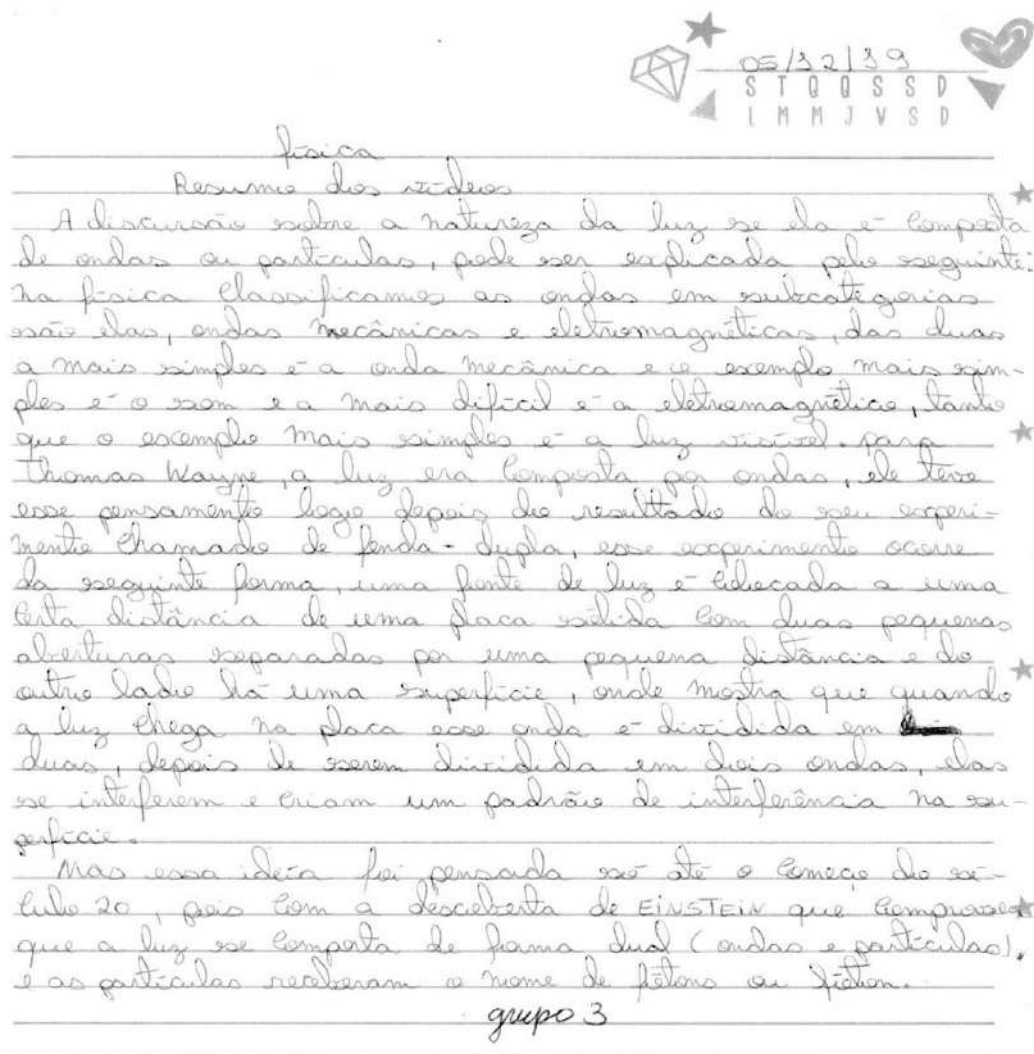 05/12/19
S T Q Q S S D
L M M J V S D
física
Resumo dos vídeos
A discursão sobre a natureza da luz se ela é composta
de ondas ou partículas, pode ser explicada pelo seguinte:
na física classificamos as ondas em subcategorias
são elas, ondas mecânicas e eletromagnéticas, das duas
a mais simples é a onda mecânica e o exemplo mais sim-
ples é o som e a mais difícil é a eletromagnético, tanto
que o exemplo mais simples é a luz visível. para
Thomas Wayne, a luz era composta por ondas, ele teve
esse pensamento logo depois do resultado do seu experi-
mento chamado de fenda-dupla, esse experimento ocorre
da seguinte forma, uma fonte de luz é colocada a uma
certa distância de uma placa sólida com duas pequenas
aberturas separadas por uma pequena distância e do
outro lado há uma superfície, onde mostra que quando
a luz chega na placa esse onda é dividida em
duas, depois de serem dividida em dois ondas, elas
se interferem e criam um padrão de interferência na su-
perfície.
Mas essa ideia foi pensada só até o começo do sé-
culo 20, pois com a descoberta de EINSTEIN que comprovou
que a luz se comporta de forma dual (ondas e partículas),
e as partículas receberam o nome de fótons ou fóton.
grupo 3